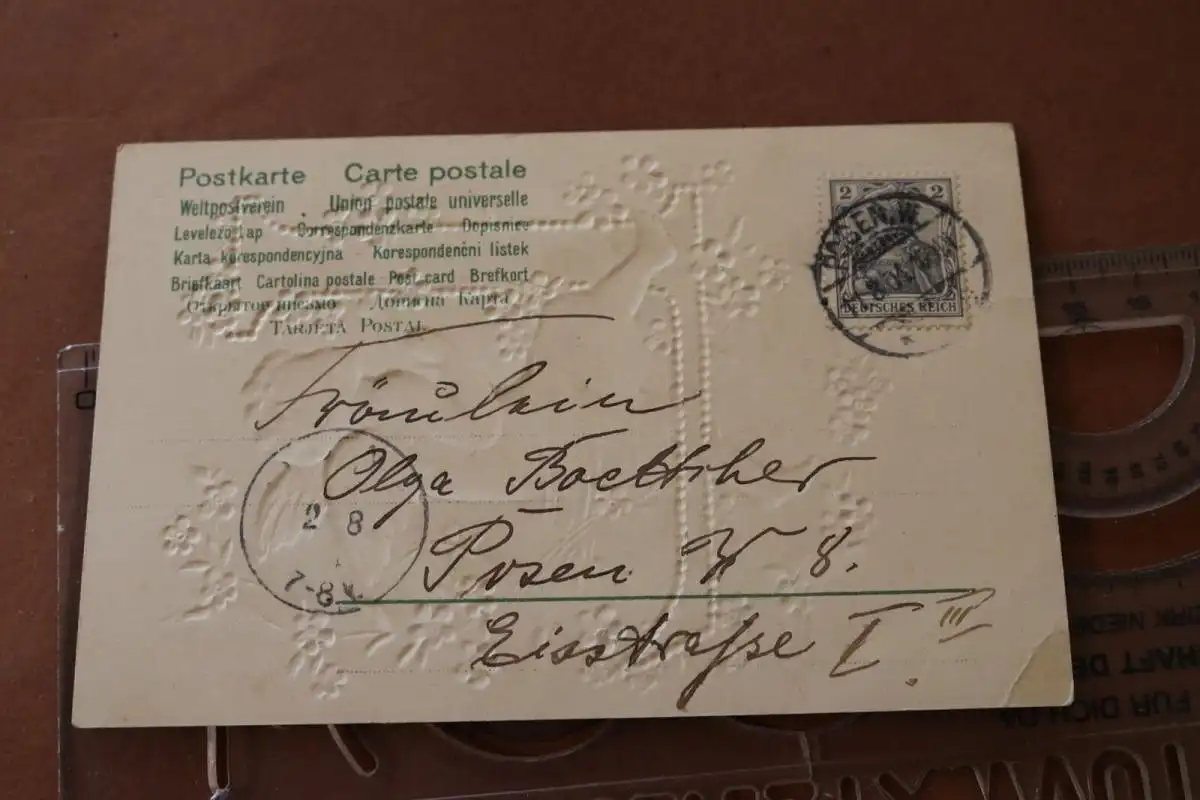 Postkarte Carte postale
Weltpostverein Union postale universelle
Levelező-Lap Correspondenzkarte Dopisnice
Karta korespondencyjna Korespondenční listek
Briefkaart Cartolina postale Post card Brefkort
Открытое письмо Дописна Карта
TARJETA POSTAL
2 2
POSEN.W.
DEUTSCHES REICH
Fräulein
Olga Boettcher
Posen W 8.
Eisstraße I III
2 8
7-8